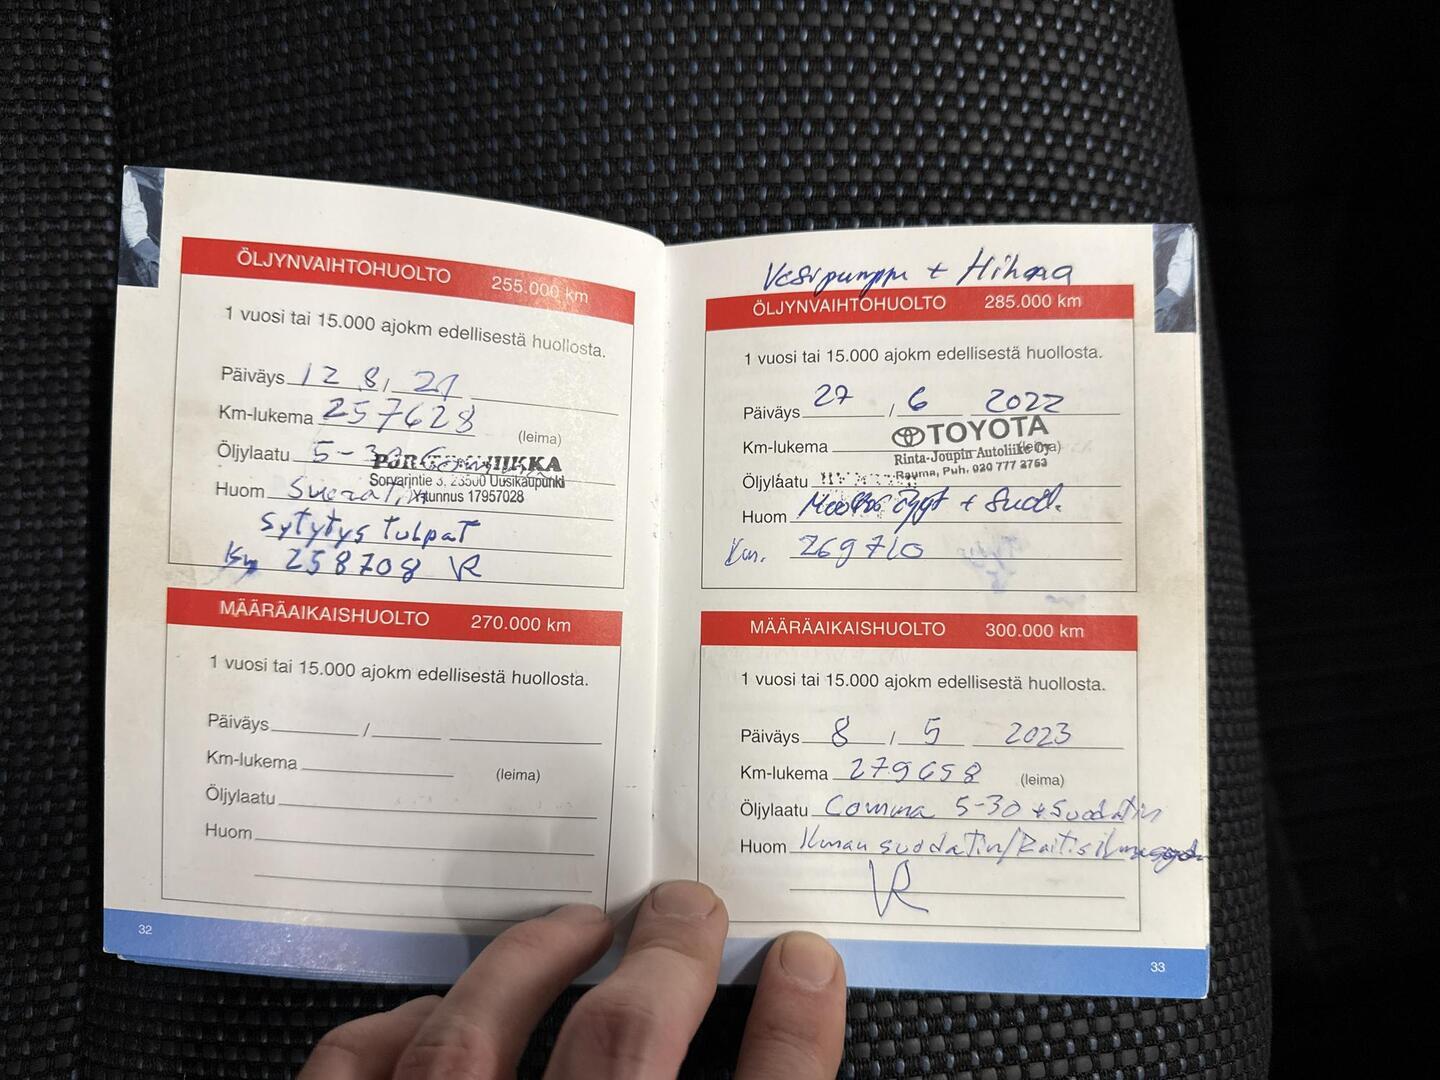 ÖLJYNVAIHTOHUOLTO 255.000 km
1 vuosi tai 15.000 ajokm edellisestä huollosta.
Päiväys 12 8, 21
Km-lukema 257628
(leima)
Öljylaatu 5-30
HIIKKA
Sorvarintie 3, 23500 Uusikaupunki
Huom Suodatin
Y-tunnus 17957028
sytytys tulpat
Km 258708 VR
MÄÄRÄAIKAISHUOLTO 270.000 km
1 vuosi tai 15.000 ajokm edellisestä huollosta.
Päiväys /
Km-lukema
(leima)
Öljylaatu
Huom
32
Vesipumppu + Hihna
ÖLJYNVAIHTOHUOLTO 285.000 km
1 vuosi tai 15.000 ajokm edellisestä huollosta.
Päiväys 27 / 6 2022
TOYOTA
Km-lukema (leima)
Rinta-Joupin Autoliike Oy
Rauma, Puh. 020 777 2763
Öljylaatu
Huom öljyt + Suod.
Km. 269710
MÄÄRÄAIKAISHUOLTO 300.000 km
1 vuosi tai 15.000 ajokm edellisestä huollosta.
Päiväys 8 / 5 2023
Km-lukema 279658 (leima)
Öljylaatu Comma 5-30 + Suodatin
Huom Ilman suodatin/Raitisilma
VR
33